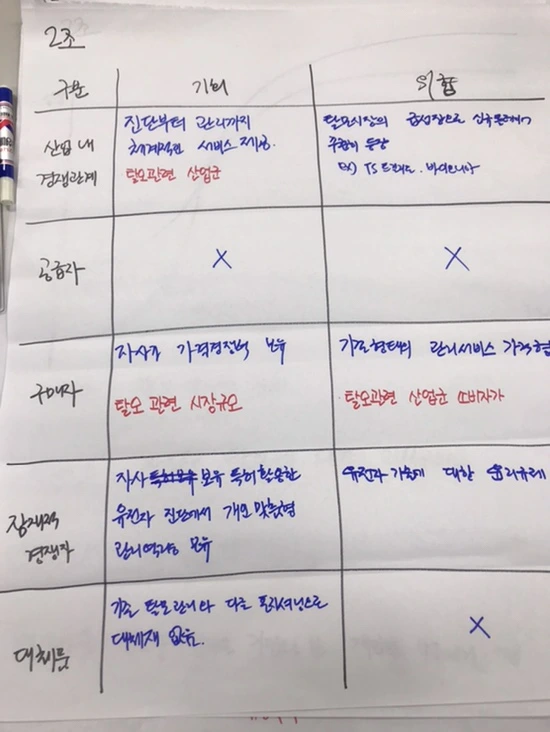 2조
구분
기회
위협
산업 내
경쟁관계
진단부터 관리까지
체계적인 서비스 제공.
탈모관련 산업군
탈모시장의 급성장으로 신규
꾸준히 등장
Ex) TS트릴리온, 바이오니아
공급자
X
X
구매자
자사가 가격결정권 보유
탈모 관련 시장규모
기존형태의 관리서비스 가격협
탈모관련 산업군 소비자가
잠재적
경쟁자
자사 보유 특허 활용한
유전자 진단에서 개인맞춤형
관리역량 보유
유전자 기술에 대한 윤리규제
대체품
기존 탈모관리와 다른 포지셔닝으로
대체재 없음.
X